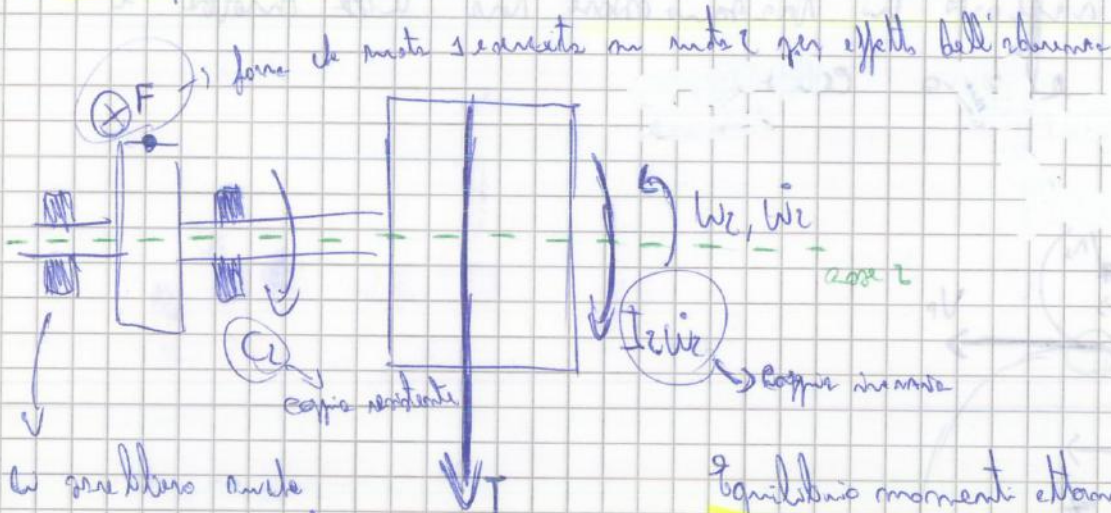 forza che ruota 1 esercita su ruota 2 per effetto dell'aderenza
F
ω2, ω̇2
asse 2
C2
I2ω̇2
coppia resistente
coppia inerzia
T
Ci sarebbero anche
Equilibrio momenti attorno